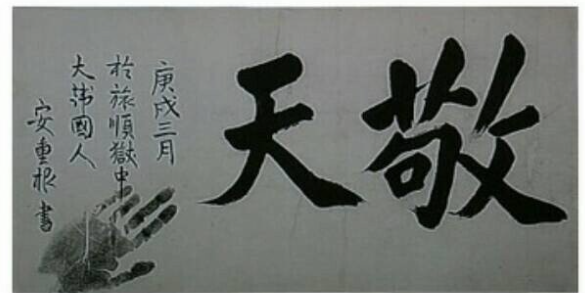 敬天
庚戌三月
於旅順獄中
大韓國人
安重根 書